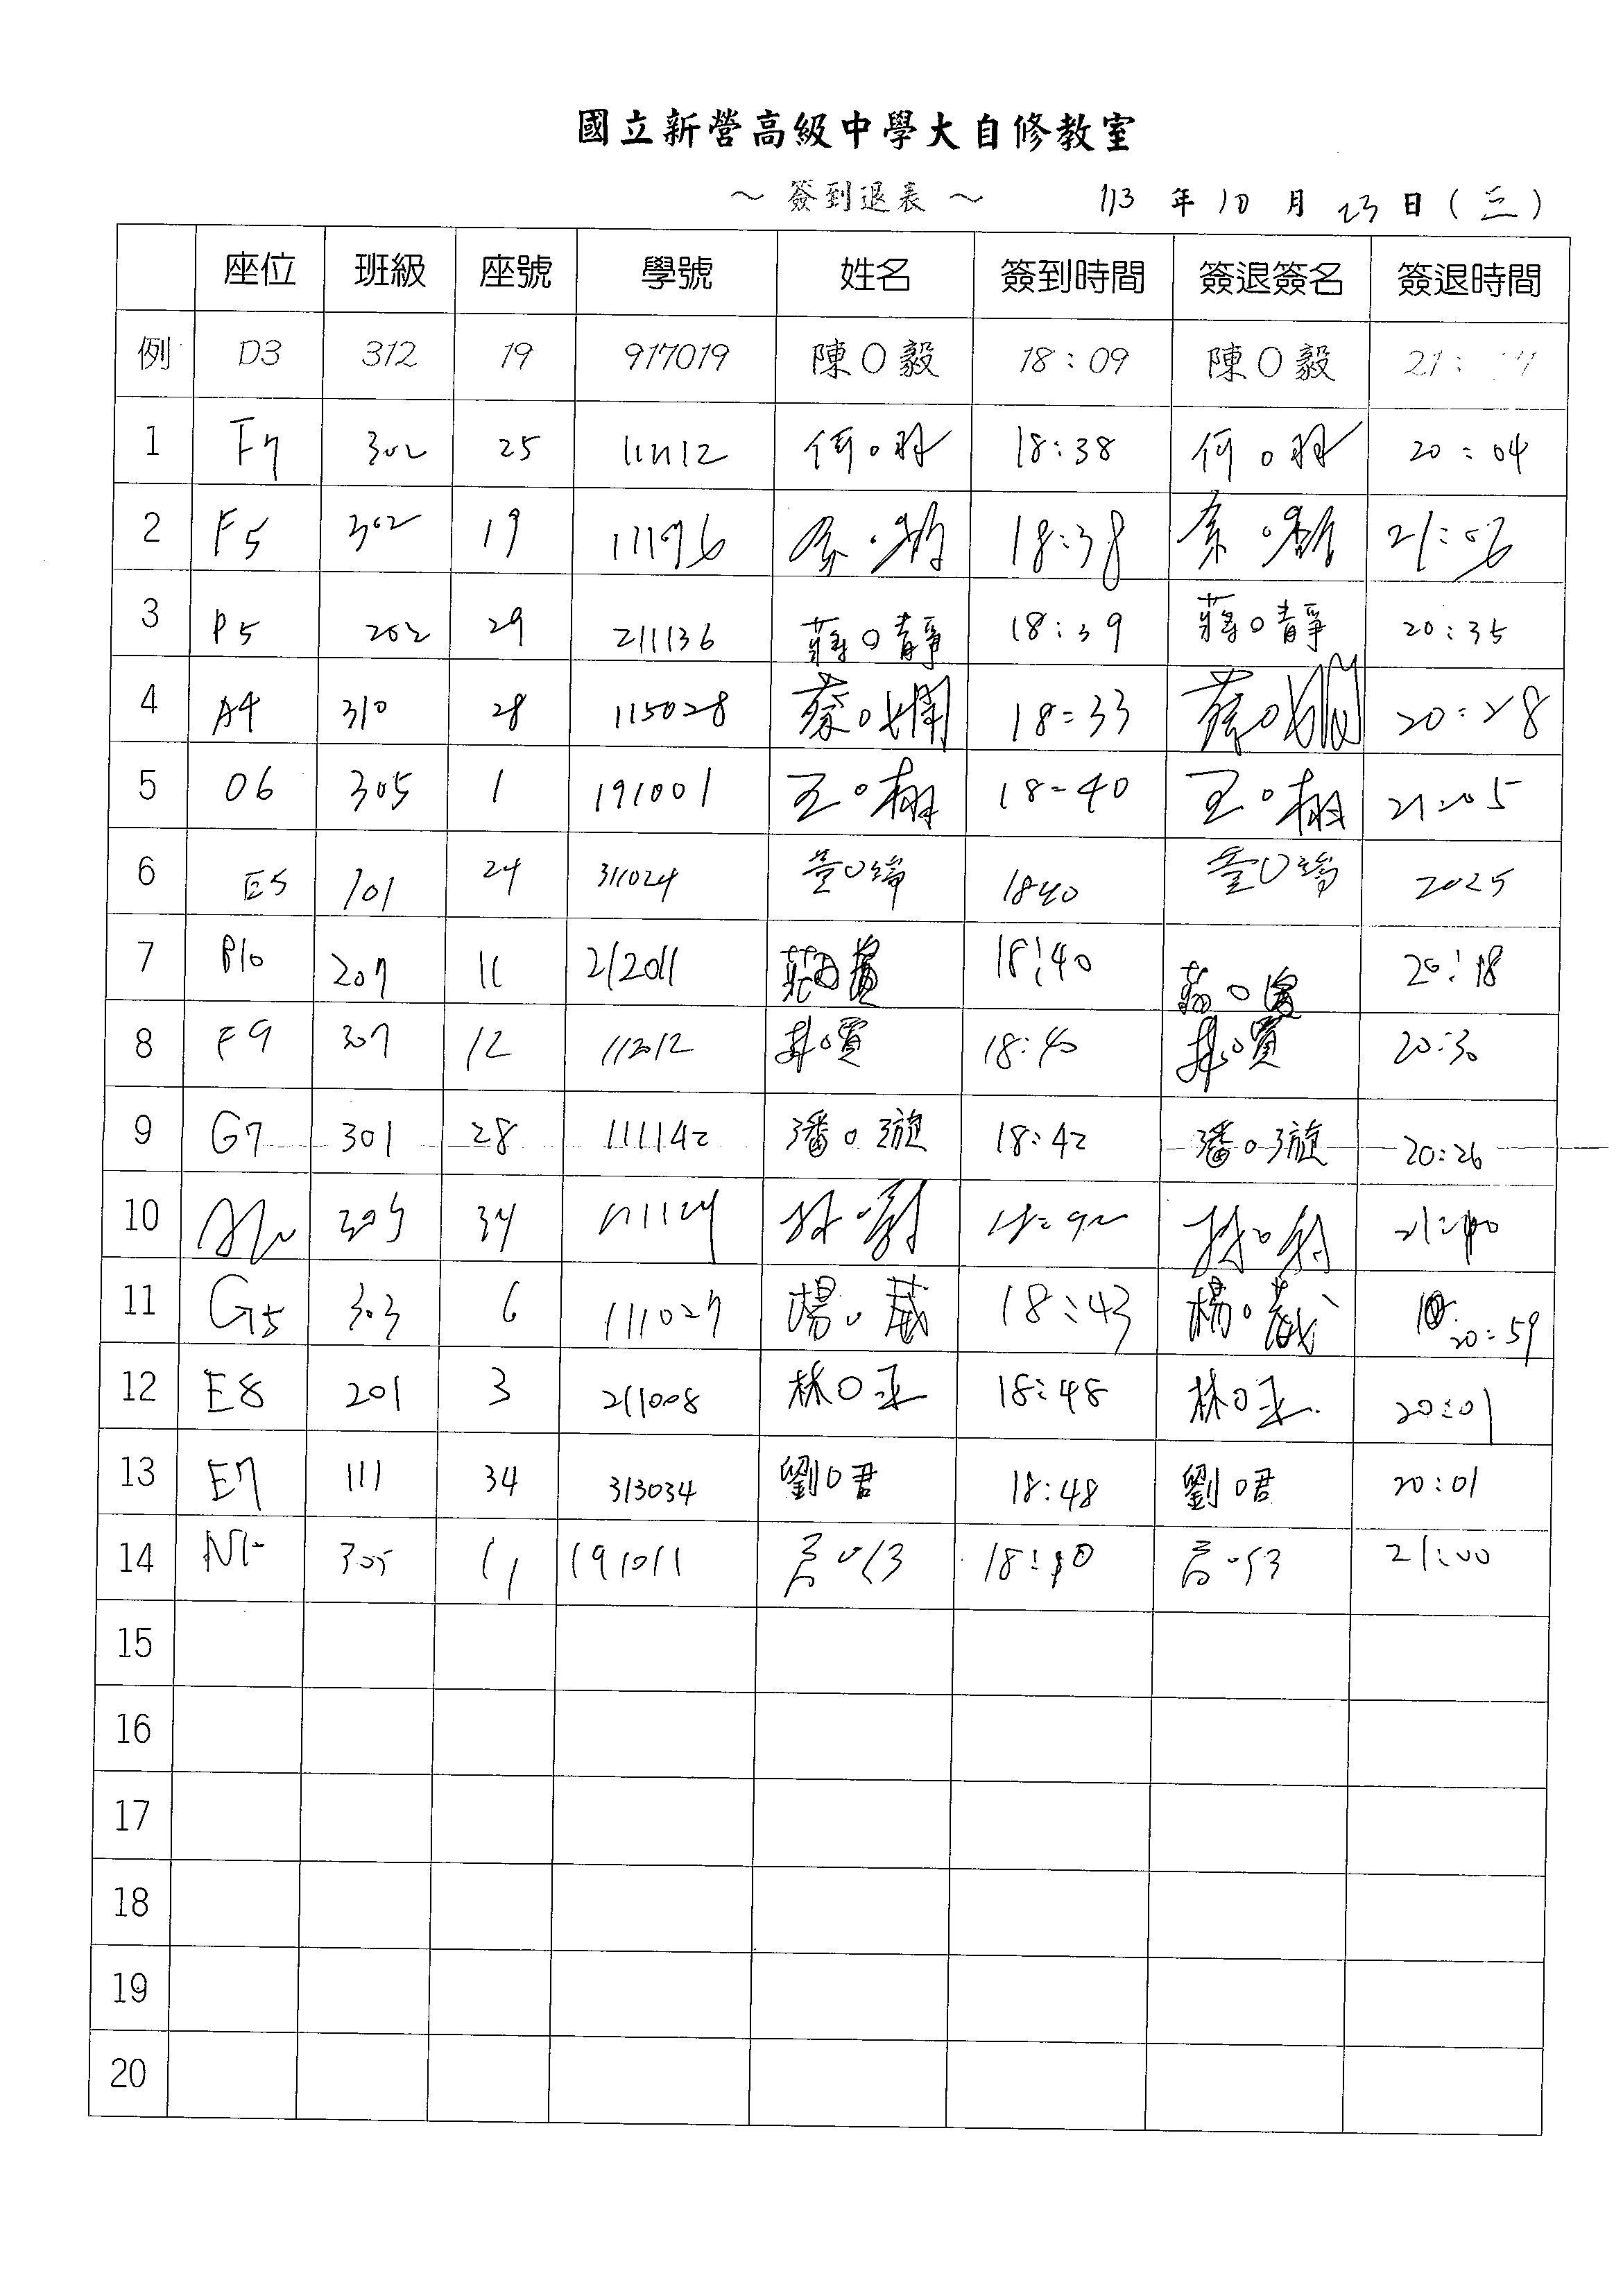 國立新營高級中學大自修教室
～ 簽到退表 ～ 113 年 10 月 23 日 (三)
座位 班級 座號 學號 姓名 簽到時間 簽退簽名 簽退時間
例 D3 312 19 917019 陳O毅 18:09 陳O毅 21:
1 F7 302 25 18:38 20:04
2 F5 302 19 111196 18:38
3 P5 202 29 211136 蔣O靜 18:39 蔣O靜 20:35
4 A4 310 28 115028 蔡O嫻 18:33 蔡O嫻 20:28
5 O6 305 1 191001 王O栩 18:40 王O栩 21:05
6 E5 101 24 311024 1840 2025
7 P10 207 11 212011 18:40 20:18
8 F9 307 12 112012 18:40 20:30
9 G7 301 28 111142 潘O璇 18:42 潘O璇 20:26
10 34 林O
11 G5 303 6 111027 楊O葳 18:43 楊O葳 20:59
12 E8 201 3 211008 林O 18:48 林O 20:01
13 E7 111 34 313034 劉O君 18:48 劉O君 20:01
14 305 11 191011 21:00
15
16
17
18
19
20